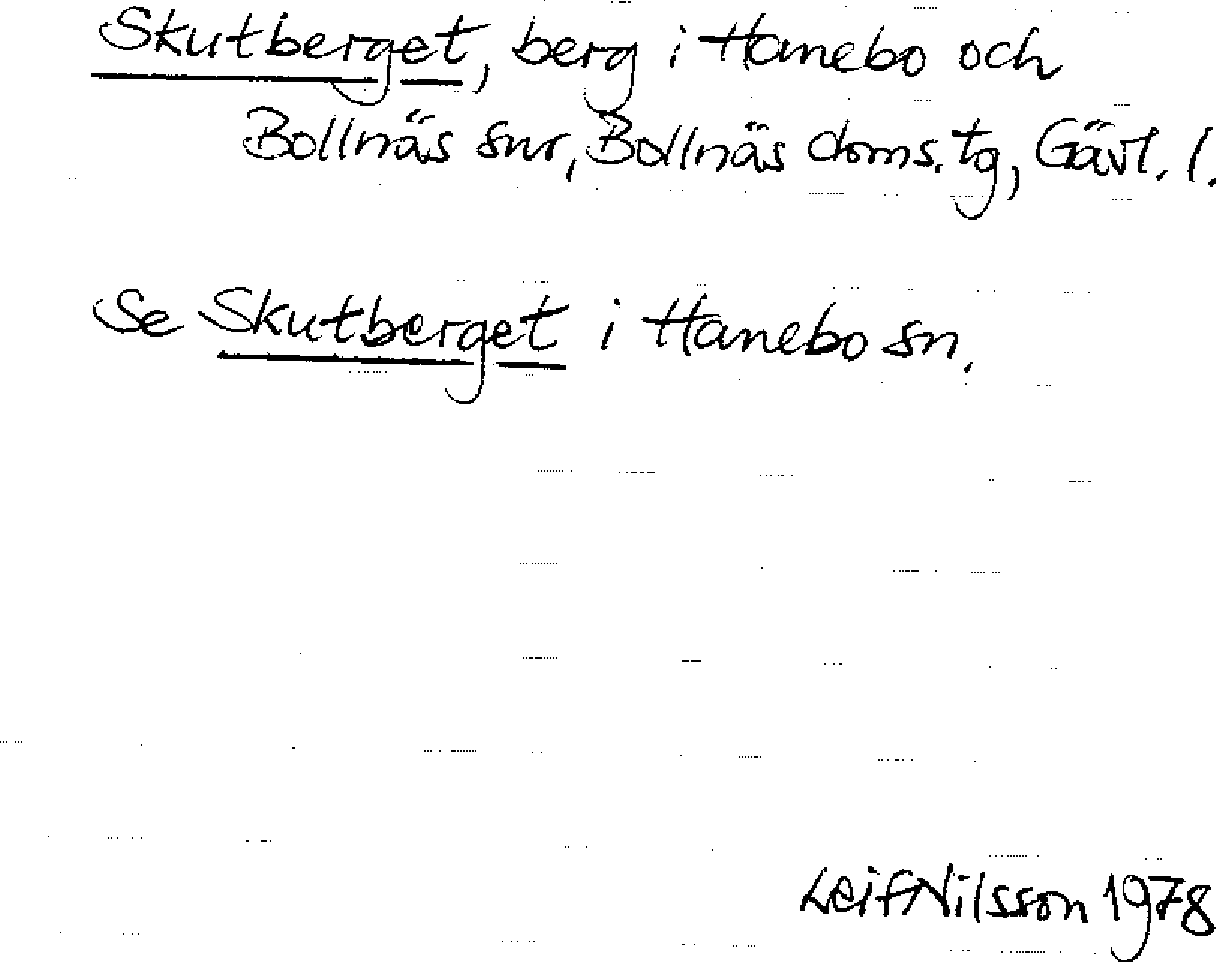 Skutberget, berg i Hanebo och
Bollnäs snr, Bollnäs doms.tg, Gävl. l.
Se Skutberget i Hanebo sn.
Leif Nilsson 1978